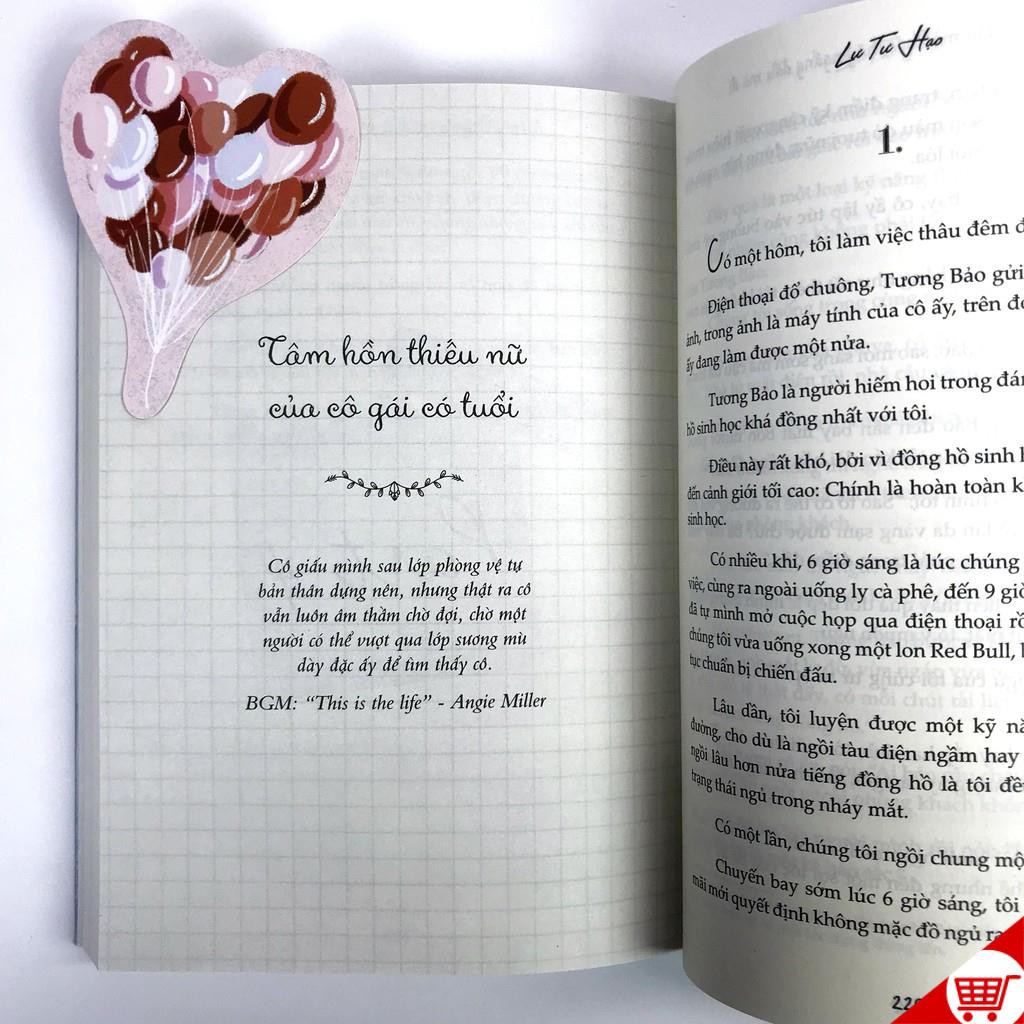 Tâm hồn thiếu nữ
của cô gái có tuổi
Cô giấu mình sau lớp phòng vệ tự
bản thân dựng nên, nhưng thật ra cô
vẫn luôn âm thầm chờ đợi, chờ một
người có thể vượt qua lớp sương mù
dày đặc ấy để tìm thấy cô.
BGM: “This is the life” - Angie Miller
Lư Tư Hạo
1.
Có một hôm, tôi làm việc thâu đêm
Điện thoại đổ chuông, Tương Bảo gửi
ảnh, trong ảnh là máy tính của cô ấy, trên
ấy đang làm được một nửa.
Tương Bảo là người hiếm hoi trong
hồ sinh học khá đồng nhất với tôi.
Điều này rất khó, bởi vì đồng hồ sinh
đến cảnh giới tối cao: Chính là hoàn toàn
sinh học.
Có nhiều khi, 6 giờ sáng là lúc chúng
việc, cùng ra ngoài uống ly cà phê, đến 9
đã tự mình mở cuộc họp qua điện thoại
chúng tôi vừa uống xong một lon Red Bull,
tục chuẩn bị chiến đấu.
Lâu dần, tôi luyện được một kỹ
đường, cho dù là ngồi tàu điện ngầm hay
ngồi lâu hơn nửa tiếng đồng hồ là tôi
trạng thái ngủ trong nháy mắt.
Có một lần, chúng tôi ngồi chung
Chuyến bay sớm lúc 6 giờ sáng, tôi
mãi mới quyết định không mặc đồ ngủ